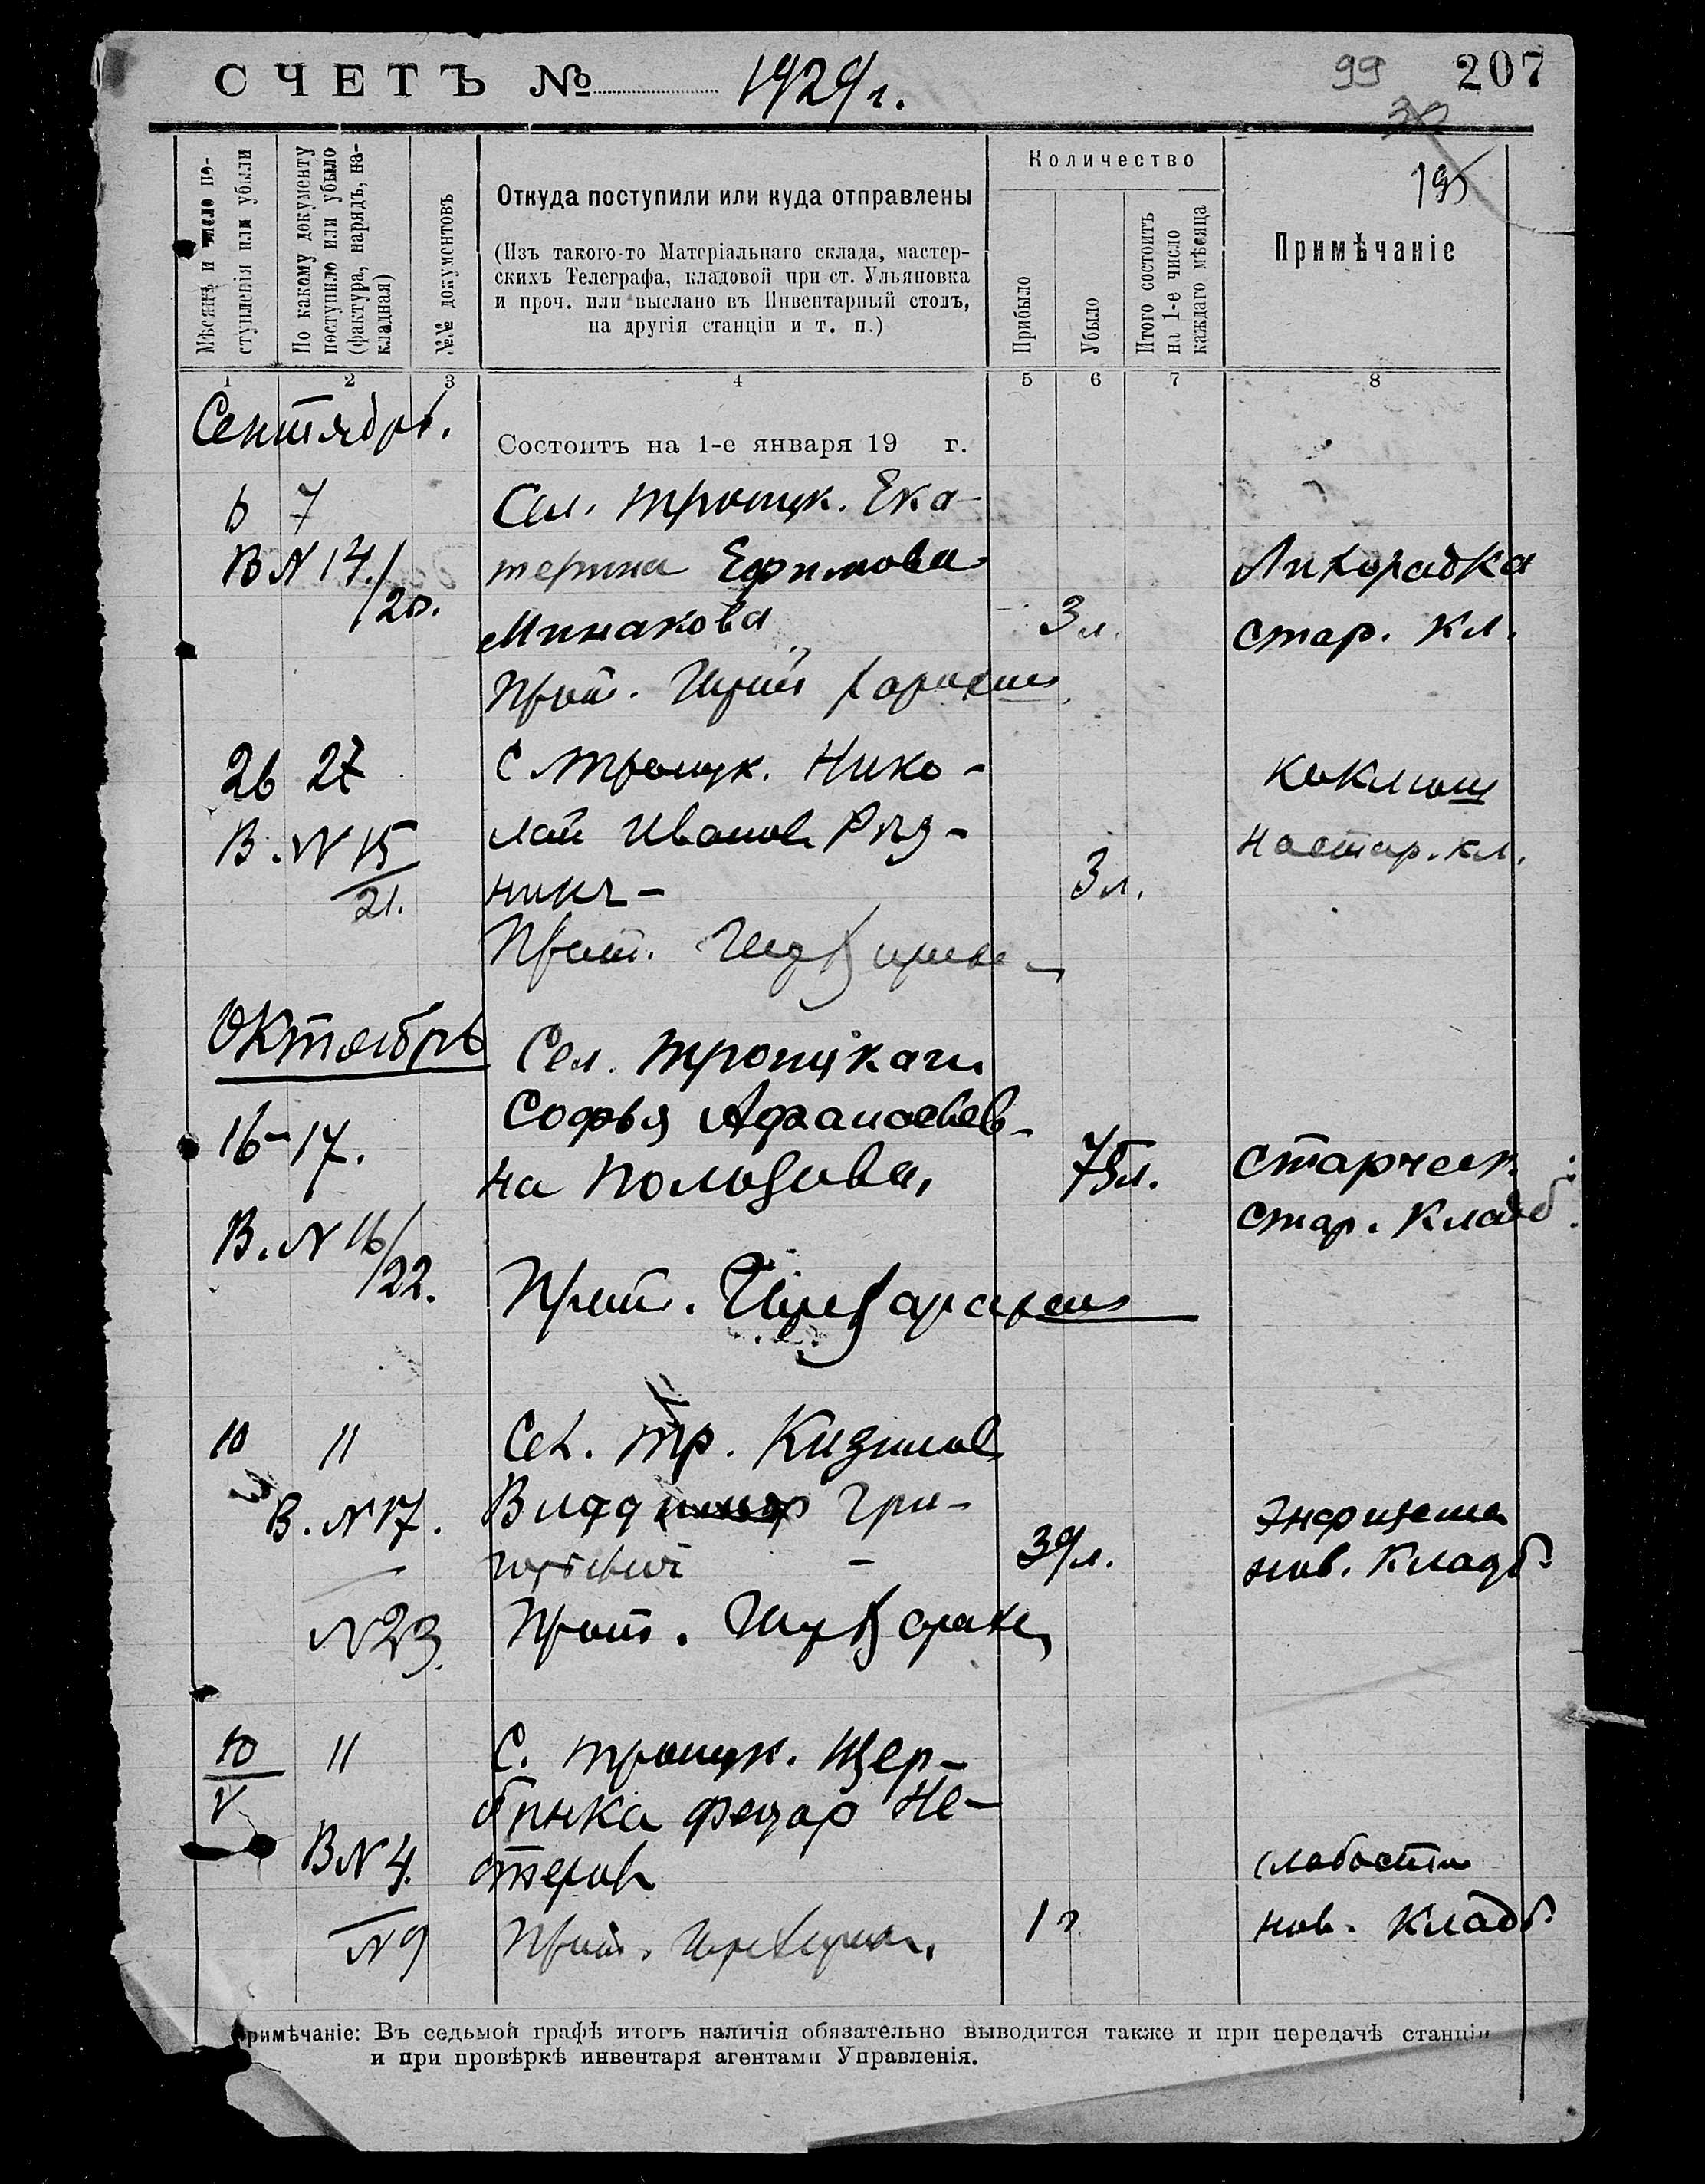 СЧЕТЪ № 1929 г.
99 207
30
195
Мѣсяцъ и число поступленія или убыли
По какому документу поступило или убыло (фактура, нарядъ, накладная)
№№ документовъ
Откуда поступили или куда отправлены
(Изъ такого-то Матеріальнаго склада, мастер-
скихъ Телеграфа, кладовой при ст. Ульяновка
и проч. или выслано въ Инвентарный столъ,
на другія станціи и т. п.)
Количество
Прибыло
Убыло
Итого состоитъ на 1-е число каждаго мѣсяца
Примѣчаніе
1 2 3 4 5 6 7 8
Сентябрь.
Состоитъ на 1-е января 19 г.
6 7 Сел. Троицк. Ека-
В N 14./20. терина Ефимова Лихорадка
Минакова 3 л. стар. кл.
Прот.
26 27 С Троицк. Нико- коклюш
В. N 15/21. лай Иванов Рѣз- на стар. кл.
никъ - 3 л.
Прот.
Октябрь Сел. Троицкаго
16-17. Софья Афанасьев-
на Полозова, 75 л. Старческ.
В. N 16/22. стар. Кладб.
Прот.
10 11 Сел. Тр. Кизилов
В. N 17. Гри-
горьевич - 39 л. нов. Кладб.
N 23. Прот.
10/V 11 С. Троицк. Щер-
бинка Федор Не-
В N 4. стеров слабости
N 9 Прот. 1 г нов. Кладб.
римѣчаніе: Въ седьмой графѣ итогъ наличія обязательно выводится также и при передачѣ станціи
и при провѣркѣ инвентаря агентами Управленія.